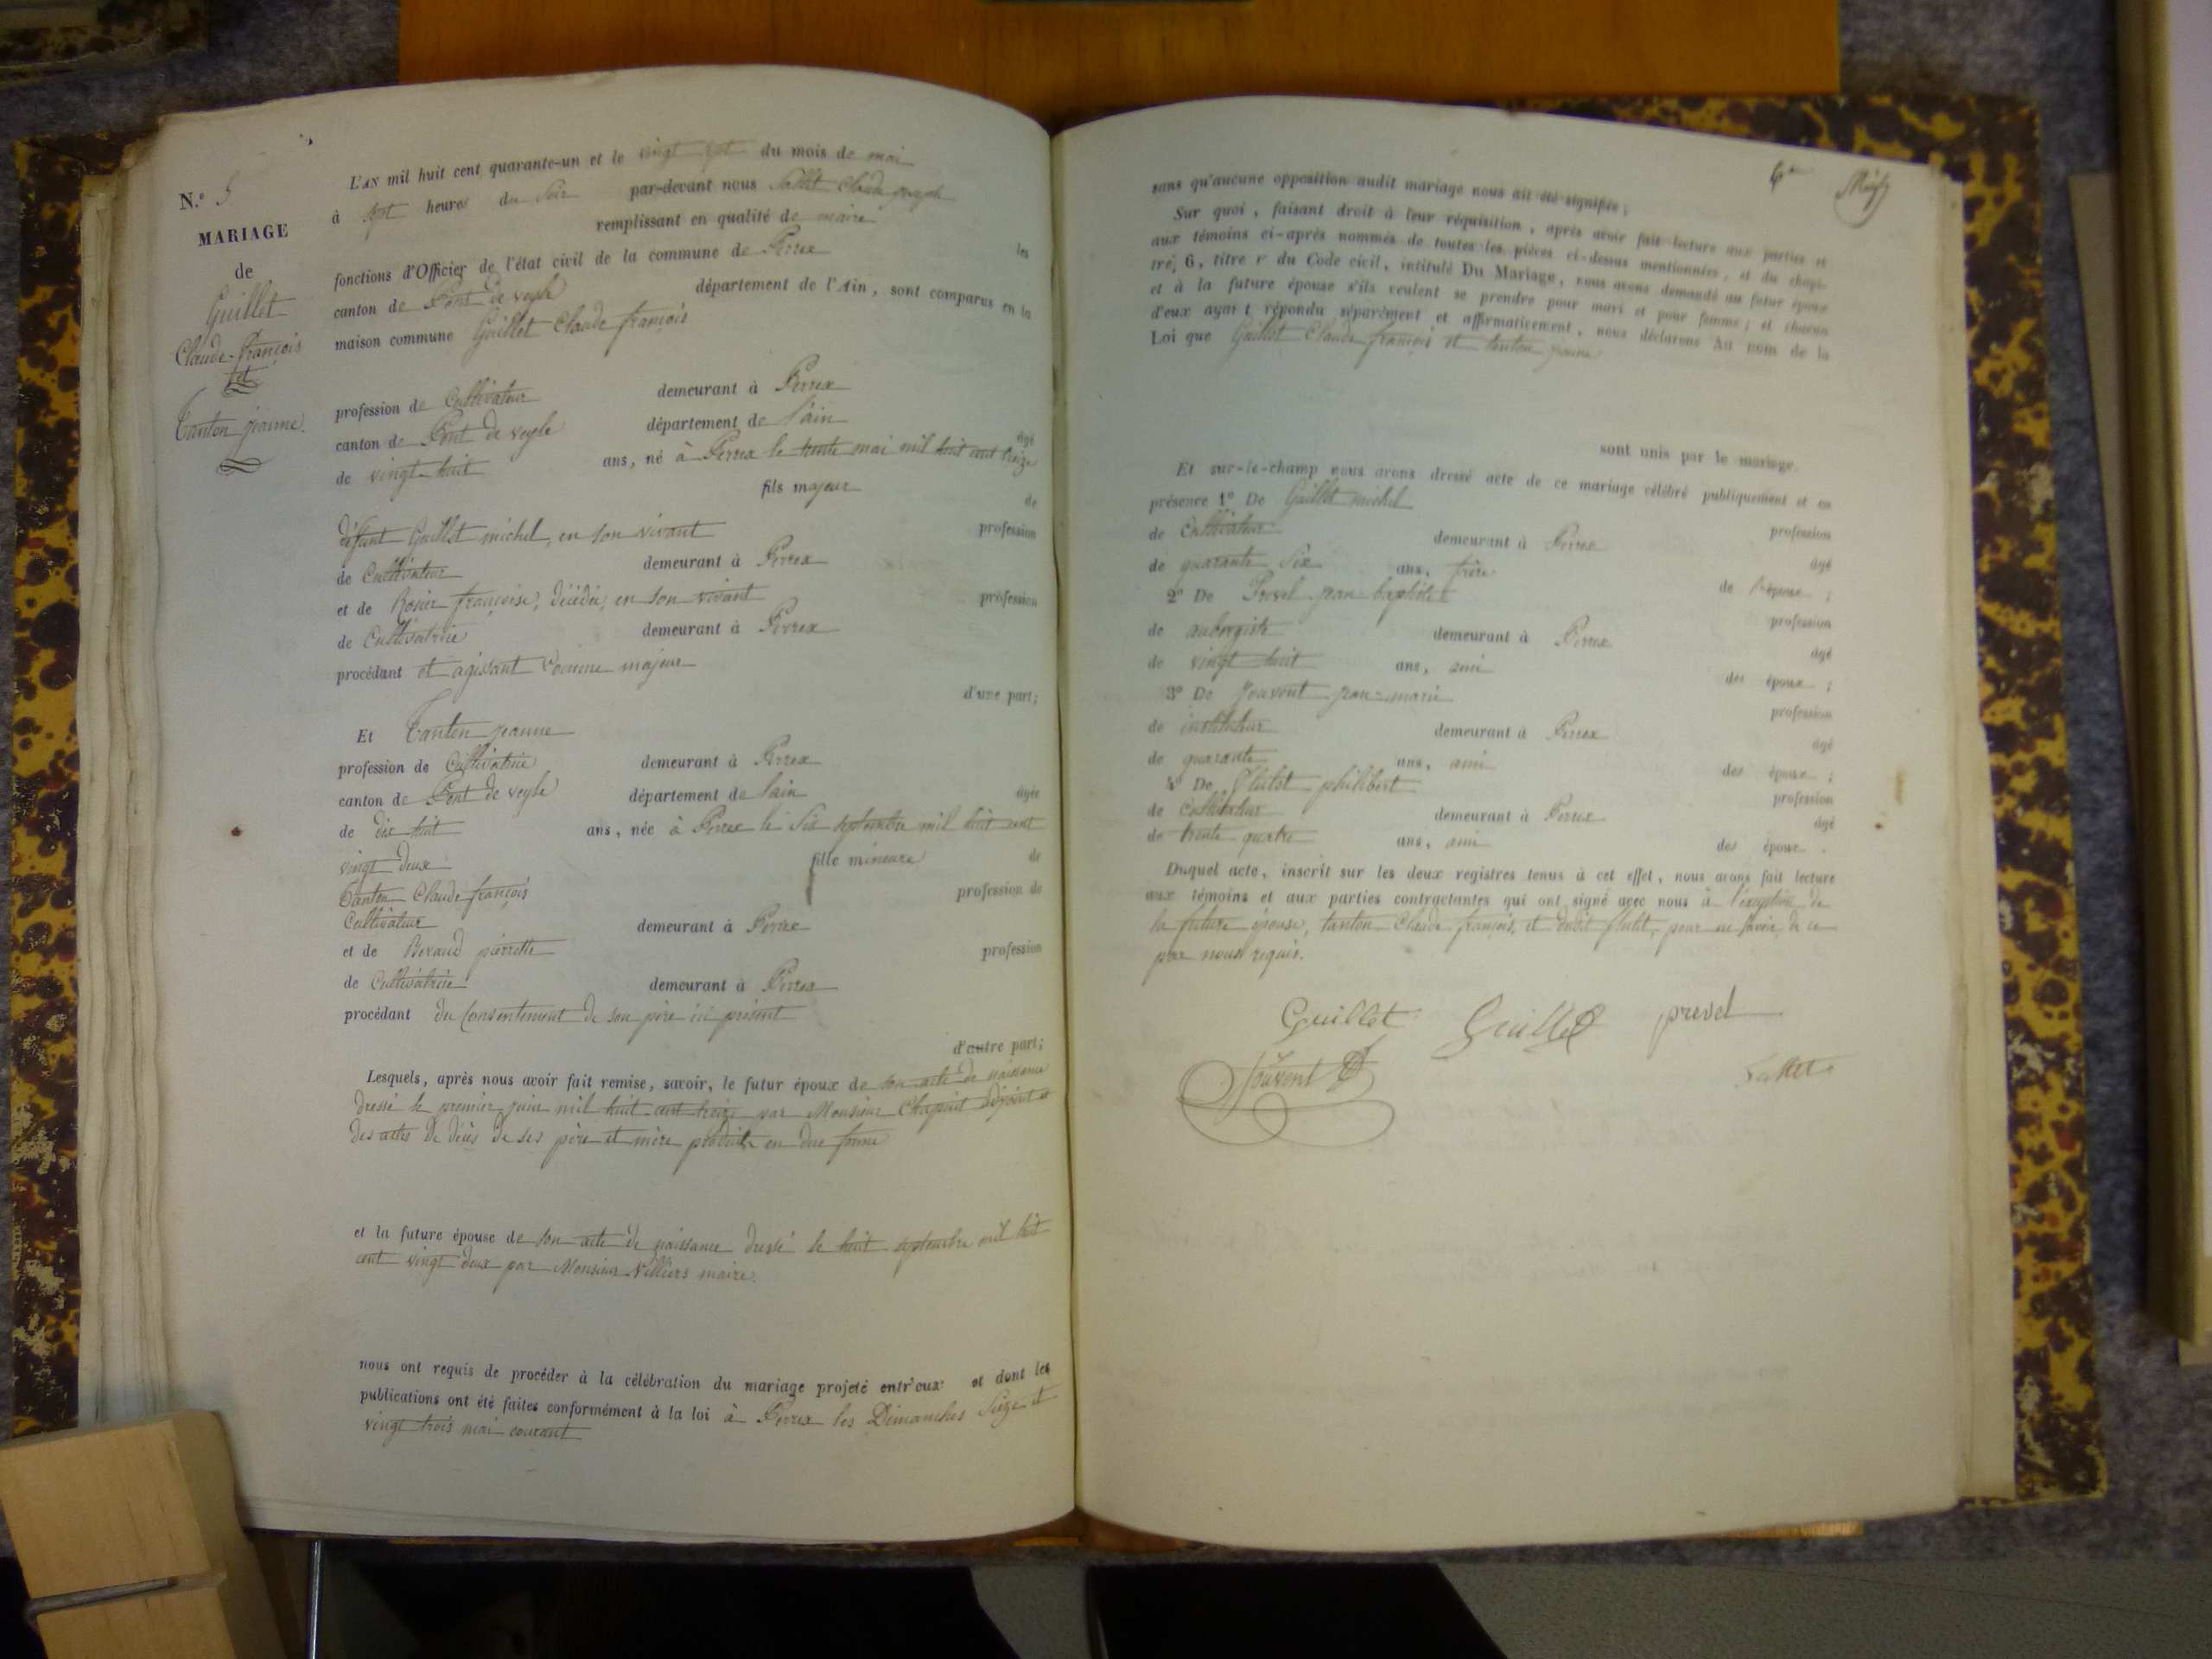 N.º 5
MARIAGE
de
Guillet
Claude-françois
et
Tanton jeanne.
L'AN mil huit cent quarante-un et le vingt sept du mois de mai
à sept heures du soir par-devant nous Sallet Claude joseph
remplissant en qualité de maire les
fonctions d'Officier de l'état civil de la commune de Perrex
canton de Pont de veyle département de l'Ain, sont comparus en la
maison commune Guillet Claude françois
profession de Cultivateur demeurant à Perrex
canton de Pont de veyle département de l'ain âgé
de vingt-huit ans, né à Perrex le trente mai mil huit cent treize
fils majeur de
défunt Guillet michel, en son vivant profession
de Cultivateur demeurant à Perrex
et de Rosier françoise, décédée, en son vivant profession
de Cultivatrice demeurant à Perrex
procédant et agissant comme majeur
d'une part;
Et Tanton jeanne
profession de Cultivatrice demeurant à Perrex
canton de Pont de veyle département de l'ain âgée
de dix huit ans, née à Perrex le six septembre mil huit cent
vingt deux fille mineure de
Tanton Claude françois profession de
Cultivateur demeurant à Perrex
et de Beraud pierrette profession
de Cultivatrice demeurant à Perrex
procédant du Consentement de son père ici présent
d'autre part;
Lesquels, après nous avoir fait remise, savoir, le futur époux de son acte de naissance
dressé le premier juin mil huit cent treize par Monsieur Chapuit adjoint et
des actes de décès de ses père et mère produits en due forme
et la future épouse de son acte de naissance dressé le huit septembre mil huit
cent vingt deux par Monsieur Villiers maire.
nous ont requis de procéder à la célébration du mariage projeté entr'eux et dont les
publications ont été faites conformément à la loi à Perrex les Dimanches Seize et
vingt trois mai courant
6
sans qu'aucune opposition audit mariage nous ait été signifiée;
Sur quoi, faisant droit à leur réquisition, après avoir fait lecture aux parties et
aux témoins ci-après nommés de toutes les pièces ci-dessus mentionnées, et du chapi-
tre, 6, titre v du Code civil, intitulé Du Mariage, nous avons demandé au futur époux
et à la future épouse s'ils veulent se prendre pour mari et pour femme; et chacun
d'eux ayant répondu séparément et affirmativement, nous déclarons Au nom de la
Loi que Guillet Claude françois et tanton jeanne
sont unis par le mariage.
Et sur-le-champ nous avons dressé acte de ce mariage célébré publiquement et en
présence 1º De Guillet michel profession
de Cultivateur demeurant à Perrex âgé
de quarante six ans, frère de l'époux;
2º De Prevel jean baptiste profession
de aubergiste demeurant à Perrex âgé
de vingt huit ans, ami des époux;
3º De Jouvent jean-marie profession
de instituteur demeurant à Perrex âgé
de quarante ans, ami des époux;
4º De Flutet philibert profession
de Cultivateur demeurant à Perrex âgé
de trente quatre ans, ami des époux.
Duquel acte, inscrit sur les deux registres tenus à cet effet, nous avons fait lecture
aux témoins et aux parties contractantes qui ont signé avec nous à l'exception de
la future épouse, tanton Claude françois, et dudit flutet, pour ne savoir, de ce
par nous requis.
Guillet Guillet prevel
Jouvent Sallet